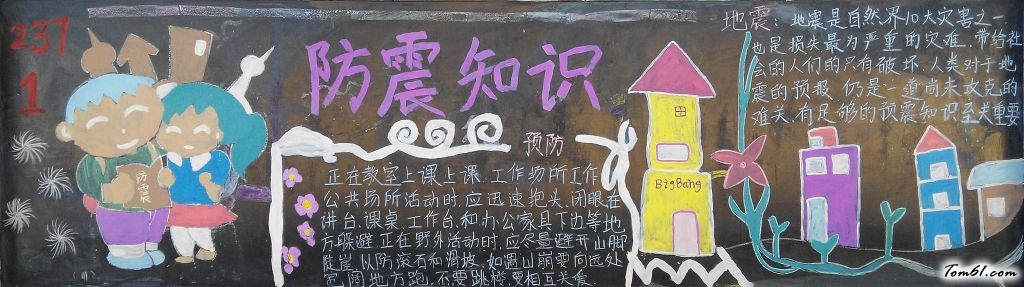 237
1
防震知识
防震
预防
正在教室上课上课.工作场所工作
公共场所活动时,应迅速抱头.闭眼在
讲台.课桌.工作台.和办公家具下边等地
方躲避.正在野外活动时,应尽量避开山脚
陡崖以防滚石和滑坡.如遇山崩要向远处
宽阔地方跑.不要跳楼.要相互关爱.
BigBang
地震:地震是自然界10大灾害之一
也是损失最为严重的灾难.带给社
会的人们的只有破坏.人类对于地
震的预报仍是一道尚未攻克的
难关.有足够的预震知识至关重要
Tom61.com